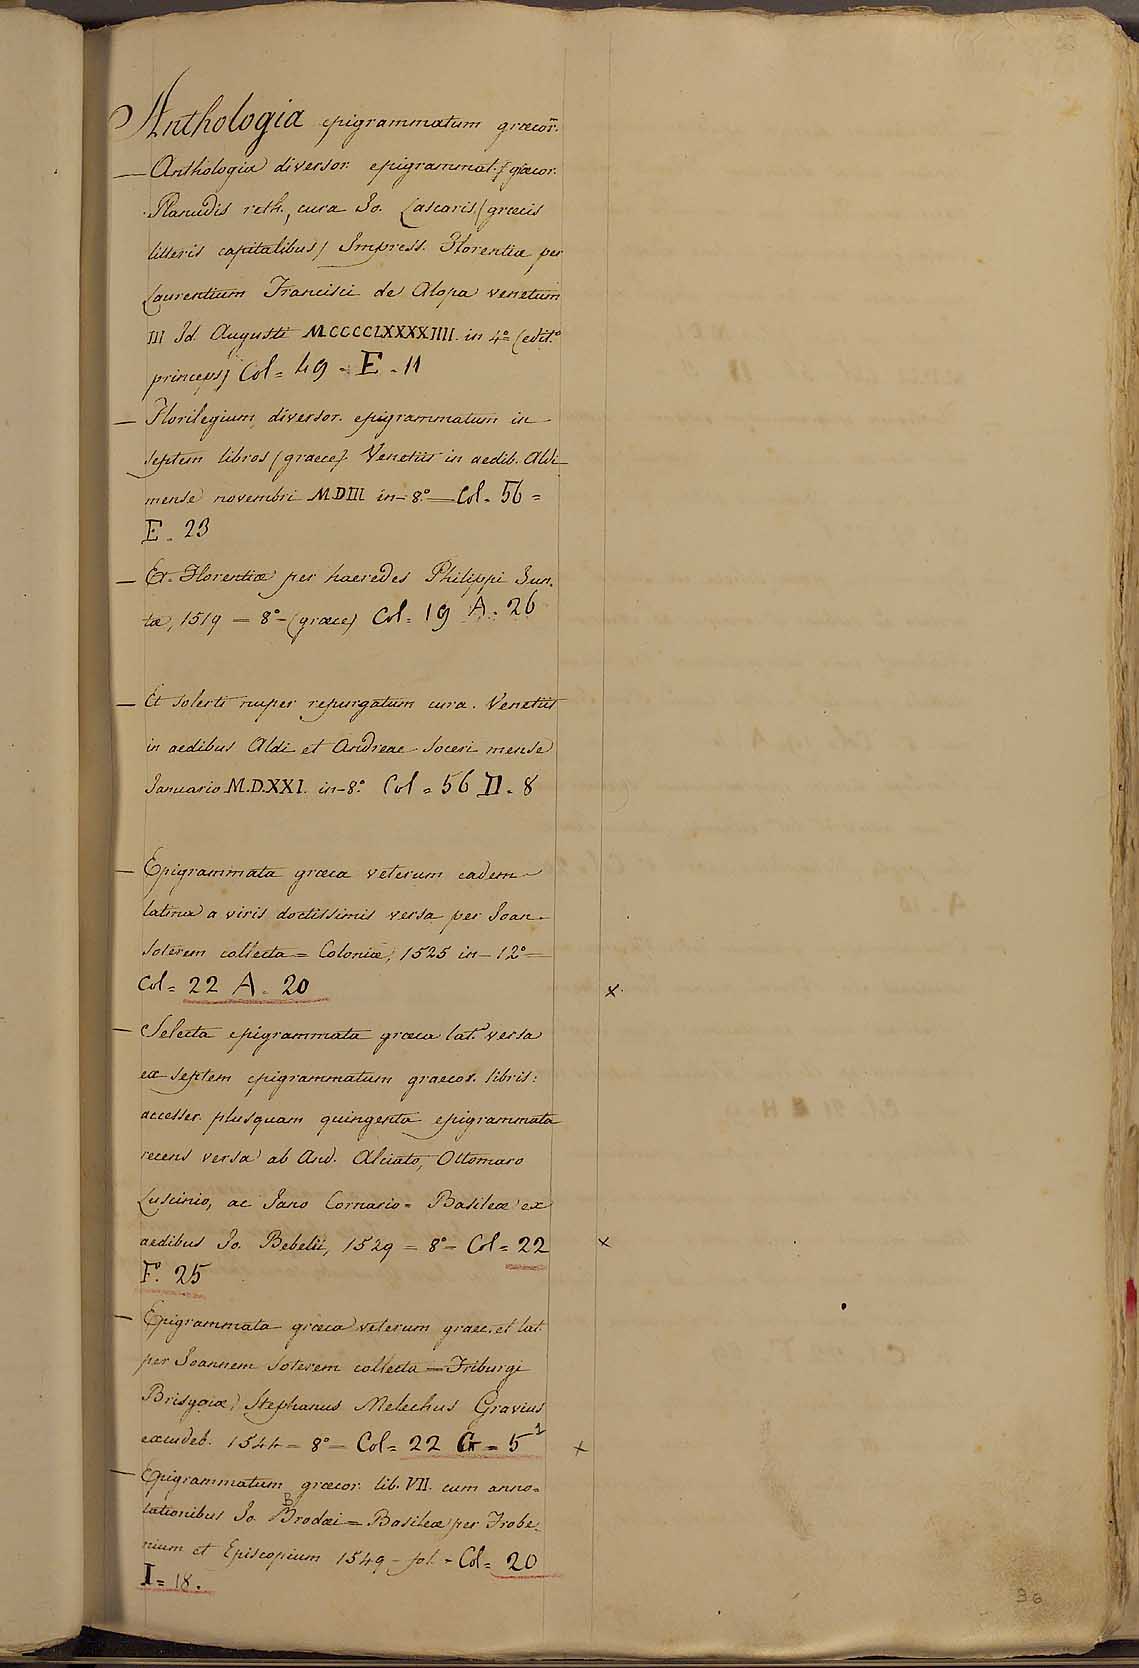 Anthologia epigrammatum græcor.
— Anthologia diversor. epigrammat. græcor.
Planudis reth., cura Jo. Lascaris (græcis
litteris capitalibus) Impress. Florentiæ per
Laurentium Francisci de Alopa venetum
III Id. Augusti MCCCCLXXXXIIII. in 4.º (edit.º
princeps) Col = 49 - E - 11
— Florilegium diversor. epigrammatum in
septem libros (graece). Venetiis in aedib. Aldi
mense novembri MDIII in-8.º — Col. 56 =
E - 23
— Et Florentiæ per haeredes Philippi Jun.
tæ, 1519 = 8.º - (græce) Col = 19 A - 26
— Et solerti nuper repurgatum cura. Venetiis
in aedibus Aldi et Andreae soceri mense
Januario M.D.XXI. in-8.º Col = 56 D - 8
— Epigrammata græca veterum eadem
latina a viris doctissimis versa per Joan.
Soterem collecta = Coloniæ, 1525 in-12.º =
Col = 22 A - 20 x
— Selecta epigrammata græca lat.e versa
ex septem epigrammatum graecor. libris:
accesser. plusquam quingenta epigrammata
recens versa ab And. Alciato, Ottomaro
Luscinio, ac Jano Cornario = Basileæ ex
aedibus Jo. Bebelii, 1529 = 8.º = Col = 22 x
F. 25
— Epigrammata græca veterum graec. et lat.
per Joannem Soterem collecta — Friburgi
Brisgoiæ, Stephanus Melechus Gravius
excudeb. 1544 = 8.º = Col = 22 G = 5 1 x
— Epigrammatum græcor. lib. VII. cum anno=
tationibus Jo. Brodæi = Basileæ per Frobe=
nium et Episcopium 1549 - fol. - Col = 20
I = 18.
36